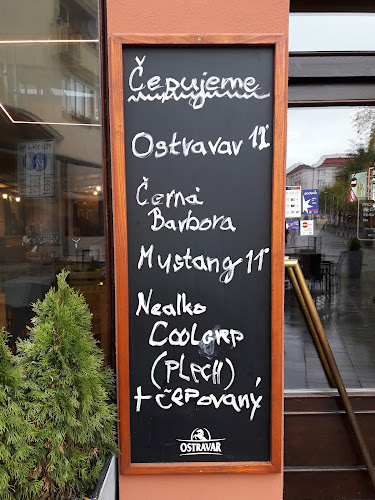 Čepujeme
Ostravar 12°
Černá
Barbora
Mustang 11°
Nealko
(PLECH)
+ čepovaný
OSTRAVAR